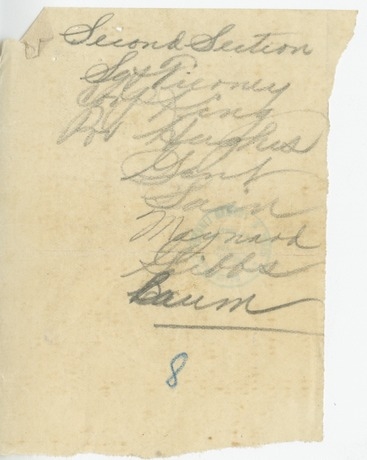 Second Section
Sgt Tierney
Cpl King
Pvt Hughes
Gent
Swain
Maynard
Gibbs
Baum
8